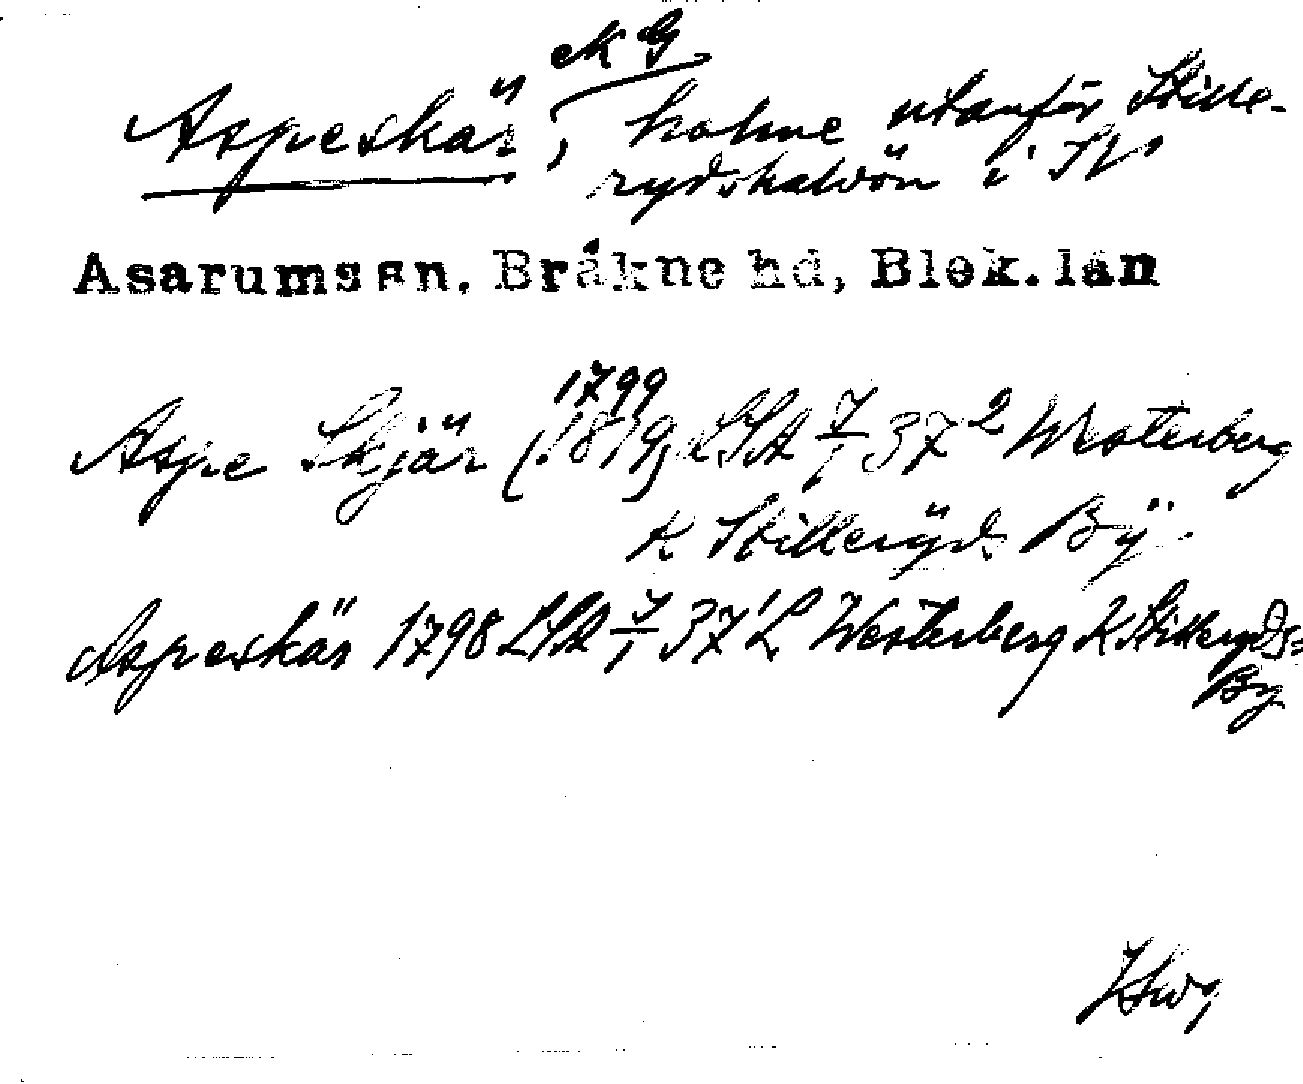 ek G
Aspeskär, holme utanför Stille-
rydshalvön i SV
Asarums sn. Bräkne hd, Blek. län
1799
Aspe Skjär (1819) LSA 7/1 37 2 Westerberg
K Stilleryds Bÿ
Aspeskär 1798 LSA 7/1 37 1 L Westerberg K Stilleryds=
By